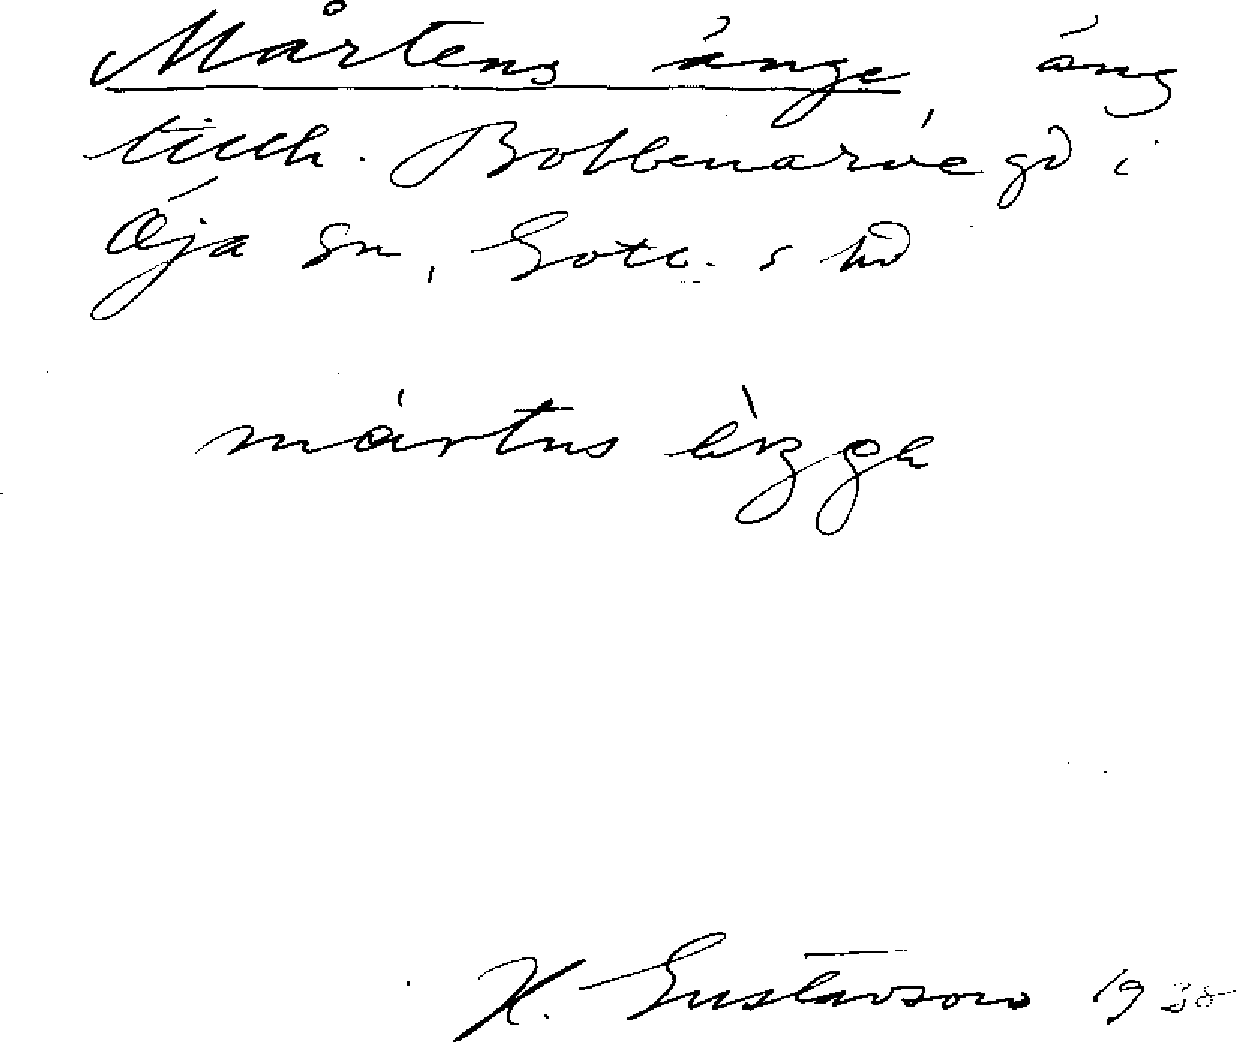 Mårtens änge äng
tillh. Bobbenarve gd i
Öja sn, Gotl. s hd
mártns
K. Gustavson 1938